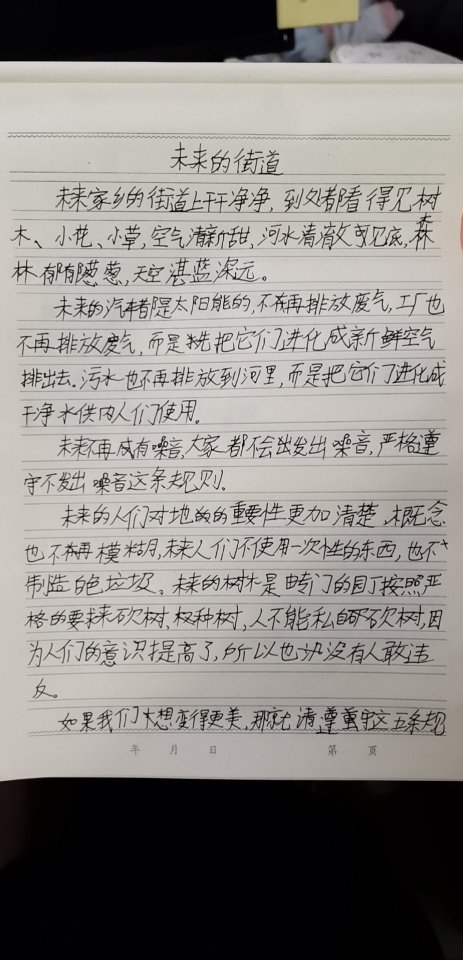 未来的街道
未来家乡的街道上干干净净，到处都看得见树
木、小花、小草，空气清新甜，河水清澈可见底，森
林郁郁葱葱，天空湛蓝深元。
未来的汽车都是太阳能的，不再排放废气，工厂也
不再排放废气，而是先把它们进化成新鲜空气
排出去。污水也不再排放到河里，而是把它们进化成
干净水供人们使用。
未来不再成有噪音，大家都不会出发出噪音，严格遵
守不发出噪音这条规则。
未来的人们对地的重要性更加清楚，概念
也不再模糊，未来人们不使用一次性的东西，也不
制造白色垃圾。未来的树木是由专门的园丁按照严
格的要求来砍树，种树，人不能私自砍树，因
为人们的意识提高了，所以也没有人敢违
反。
如果我们想变得更美，那就请遵守这五条规
年 月 日 第 页